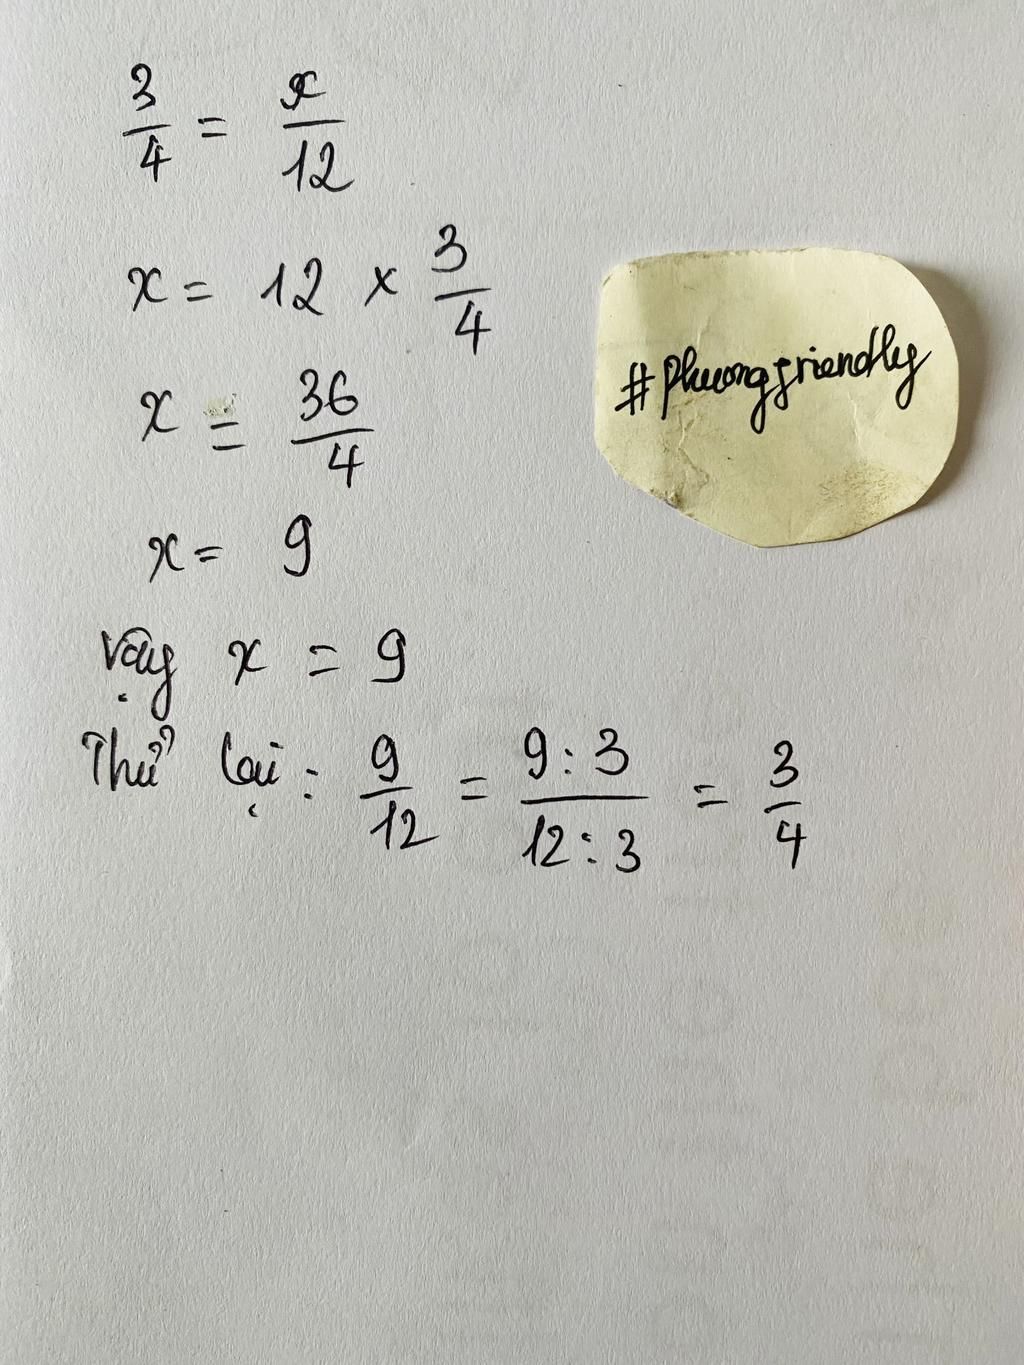 3/4 = x/12
x = 12 × 3/4
x = 36/4
x = 9
Vậy x = 9
Thử lại: 9/12 = 9:3/12:3 = 3/4
#phuongfriendly